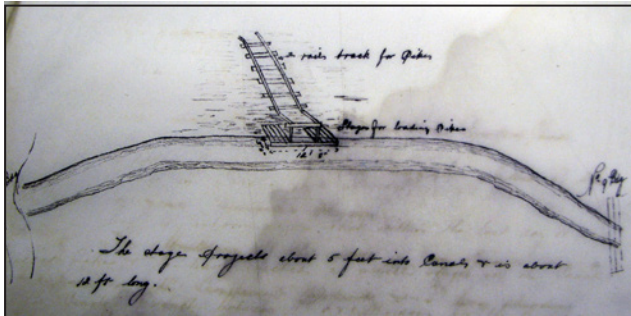 rails track for Pipes
Stage for loading Pipes
12' 0"
The stage projects about 5 feet into Canal & is about
12 ft long.